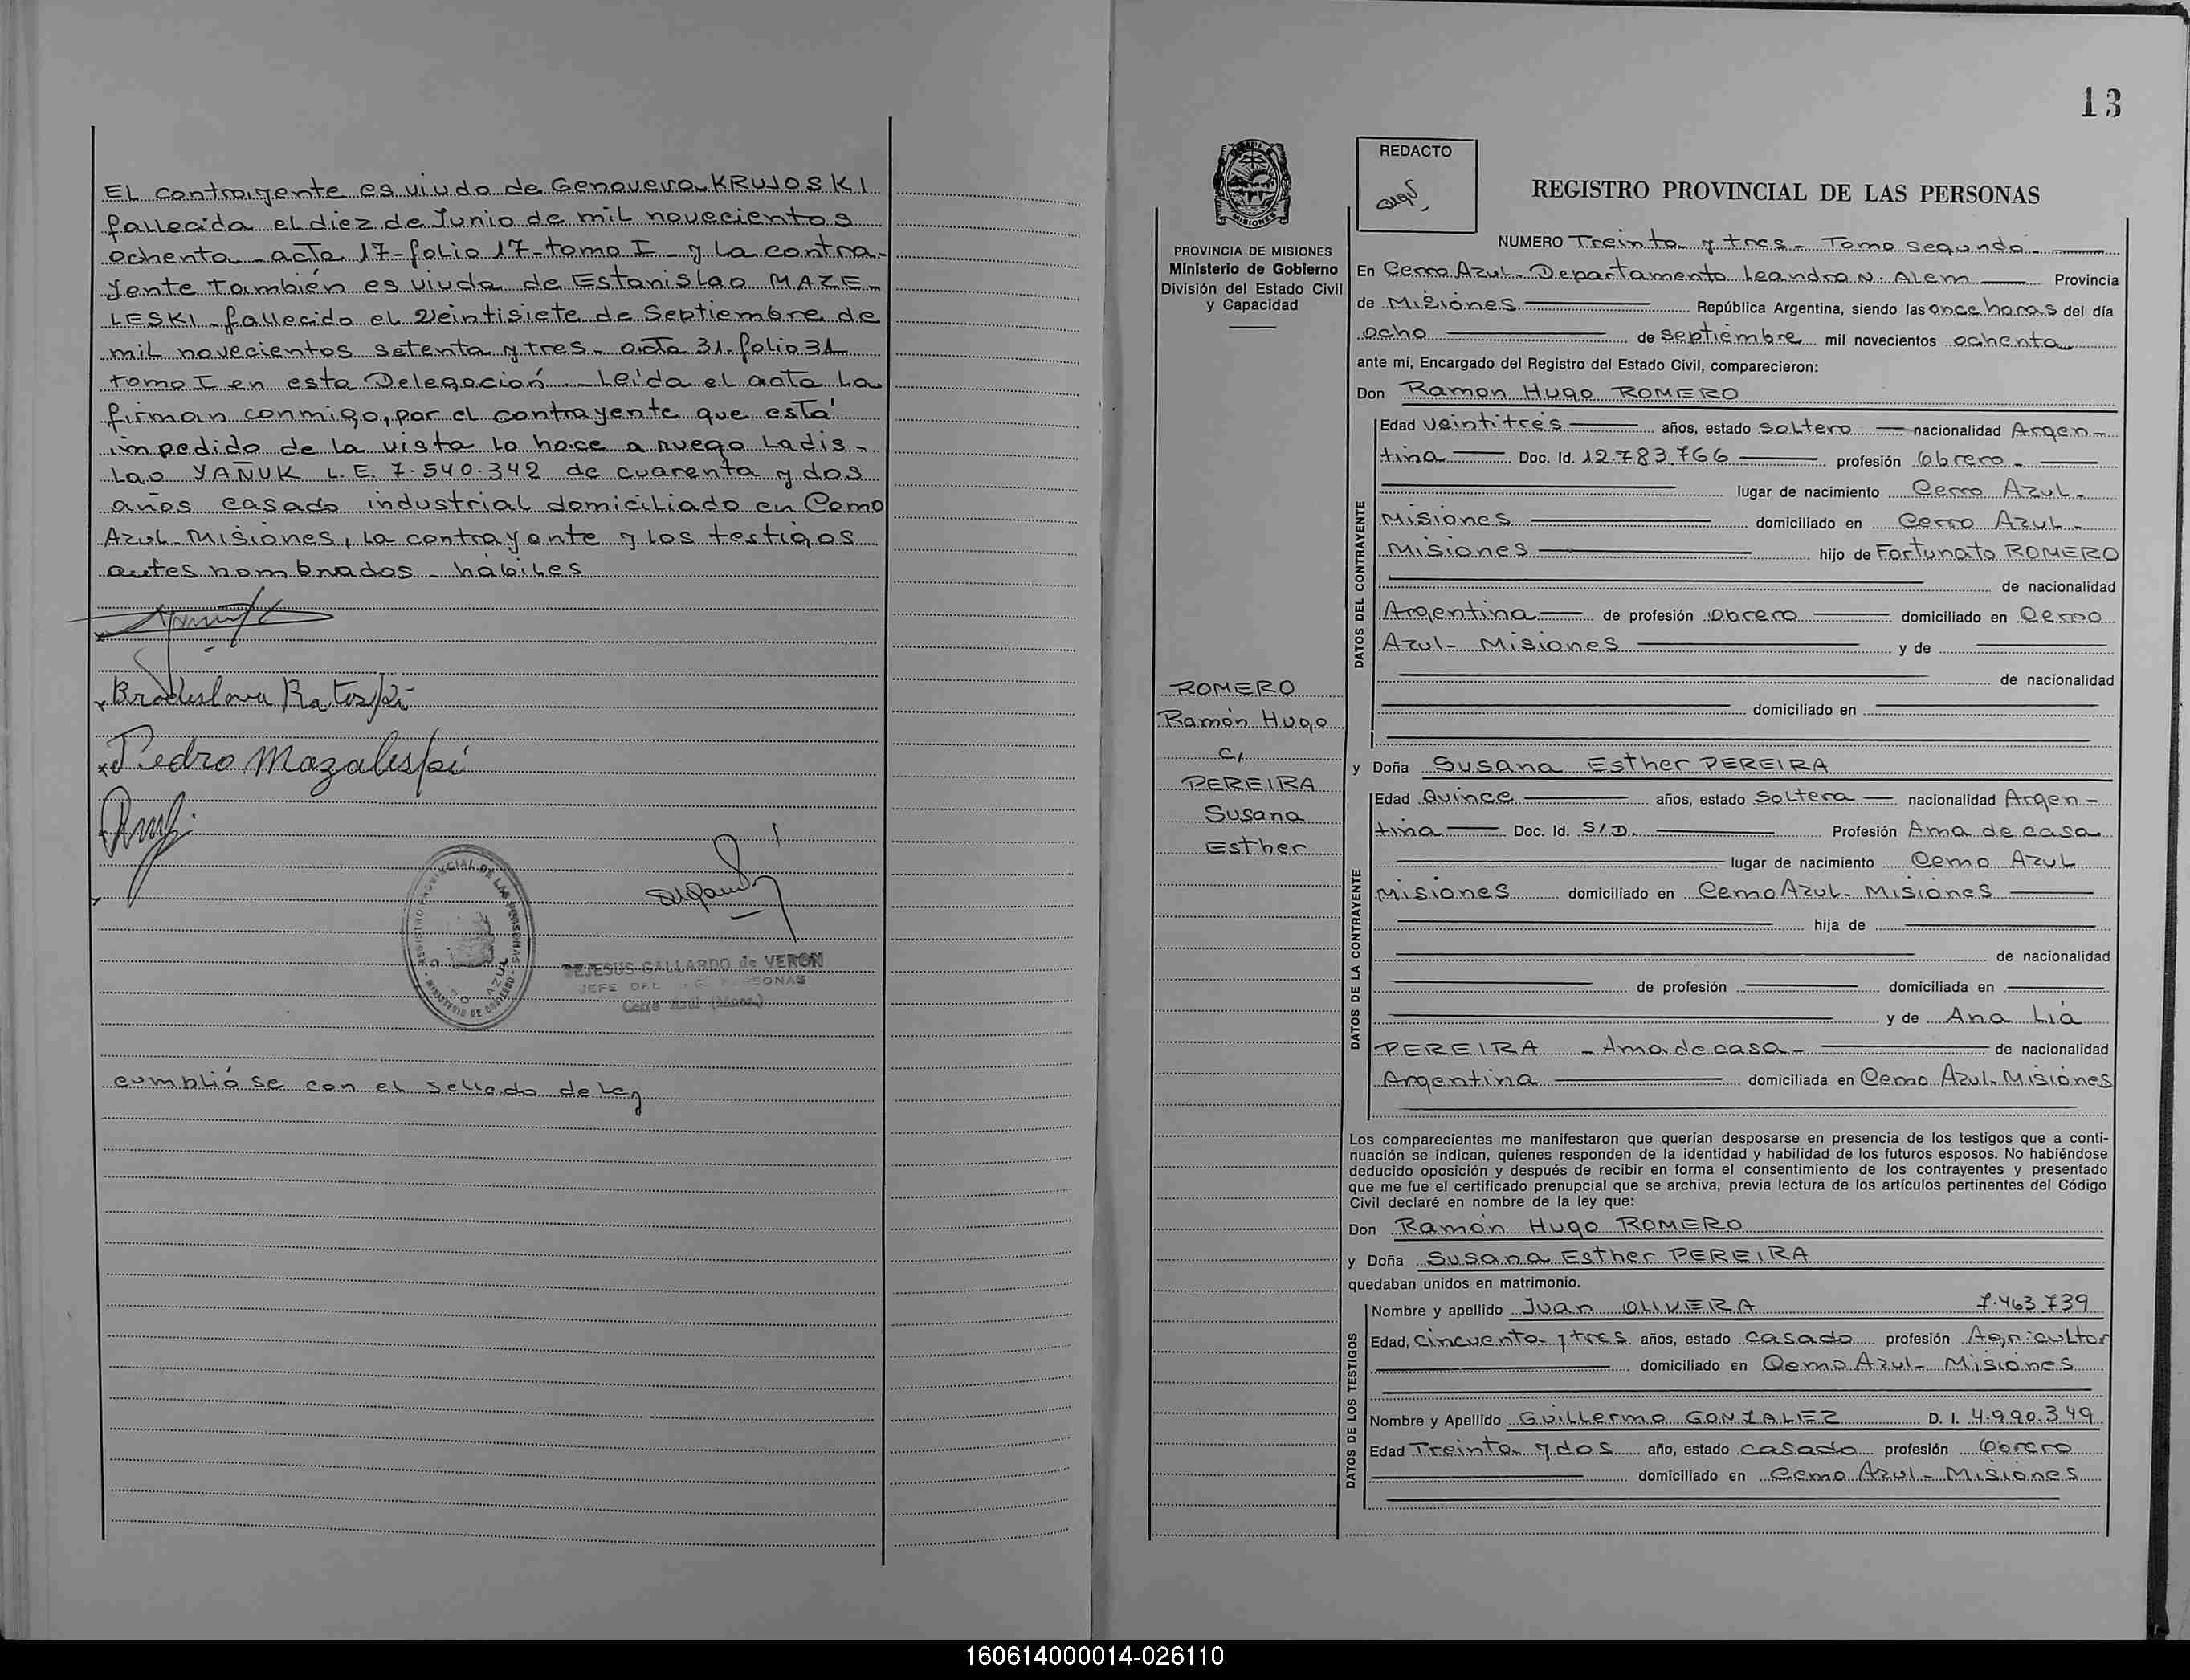 EL contrayente es viudo de Genoveva KRUJOSKI
fallecida el diez de Junio de mil novecientos
ochenta - acta 17 - folio 17 - tomo I - y La contra-
yente también es viuda de Estanislao MAZE-
LESKI - fallecido el Veintisiete de Septiembre de
mil novecientos setenta y tres - acta 31 - folio 31
tomo I en esta Delegación - Leída el acta La
firman conmigo, por el contrayente que está
impedido de la vista lo hace a ruego Ladis-
Lao YAÑUK L.E. 7.540.342 de cuarenta y dos
años casado industrial domiciliado en Cerro
Azul - Misiones, la contrayente y los testigos
antes nombrados - hábiles
Pedro Mazaleski
REGISTRO PROVINCIAL DE LAS PERSONAS
DEJESUS GALLARDO de VERON
JEFE DEL
Cerro Azul (Mnes.)
cumplió se con el sellado de Ley
13
REDACTO
REGISTRO PROVINCIAL DE LAS PERSONAS
MISIONES
PROVINCIA DE MISIONES
Ministerio de Gobierno
División del Estado Civil
y Capacidad
ROMERO
Ramón Hugo
C/
PEREIRA
Susana
Esther
NUMERO Treinta y tres - Tomo segundo -
En Cerro Azul - Departamento Leandro N. ALem Provincia
de Misiones República Argentina, siendo las once horas del día
ocho de septiembre mil novecientos ochenta
ante mí, Encargado del Registro del Estado Civil, comparecieron:
Don Ramon Hugo ROMERO
DATOS DEL CONTRAYENTE
Edad veintitrés años, estado soltero nacionalidad Argen-
tina Doc. Id. 12.783.766 profesión Obrero -
lugar de nacimiento Cerro Azul -
Misiones domiciliado en Cerro Azul -
Misiones hijo de Fortunato ROMERO
de nacionalidad
Argentina de profesión obrero domiciliado en Cerro
Azul - Misiones y de
de nacionalidad
domiciliado en
y Doña Susana Esther PEREIRA
DATOS DE LA CONTRAYENTE
Edad Quince años, estado soltera nacionalidad Argen-
tina Doc. Id. S/D. Profesión Ama de casa
lugar de nacimiento Cerro Azul
Misiones domiciliado en Cerro Azul - Misiones
hija de
de nacionalidad
de profesión domiciliada en
y de Ana Lía
PEREIRA - Ama de casa - de nacionalidad
Argentina domiciliada en Cerro Azul - Misiones
Los comparecientes me manifestaron que querían desposarse en presencia de los testigos que a conti-
nuación se indican, quienes responden de la identidad y habilidad de los futuros esposos. No habiéndose
deducido oposición y después de recibir en forma el consentimiento de los contrayentes y presentado
que me fue el certificado prenupcial que se archiva, previa lectura de los artículos pertinentes del Código
Civil declaré en nombre de la ley que:
Don Ramón Hugo ROMERO
y Doña Susana Esther PEREIRA
quedaban unidos en matrimonio.
DATOS DE LOS TESTIGOS
Nombre y apellido Juan OLIVIERA 7.463.739
Edad, cincuenta y tres años, estado casado profesión Agricultor
domiciliado en Cerro Azul - Misiones
Nombre y Apellido Guillermo GONZALEZ D. I. 4.990.349
Edad Treinta y dos año, estado casado profesión Obrero
domiciliado en Cerro Azul - Misiones
160614000014-026110